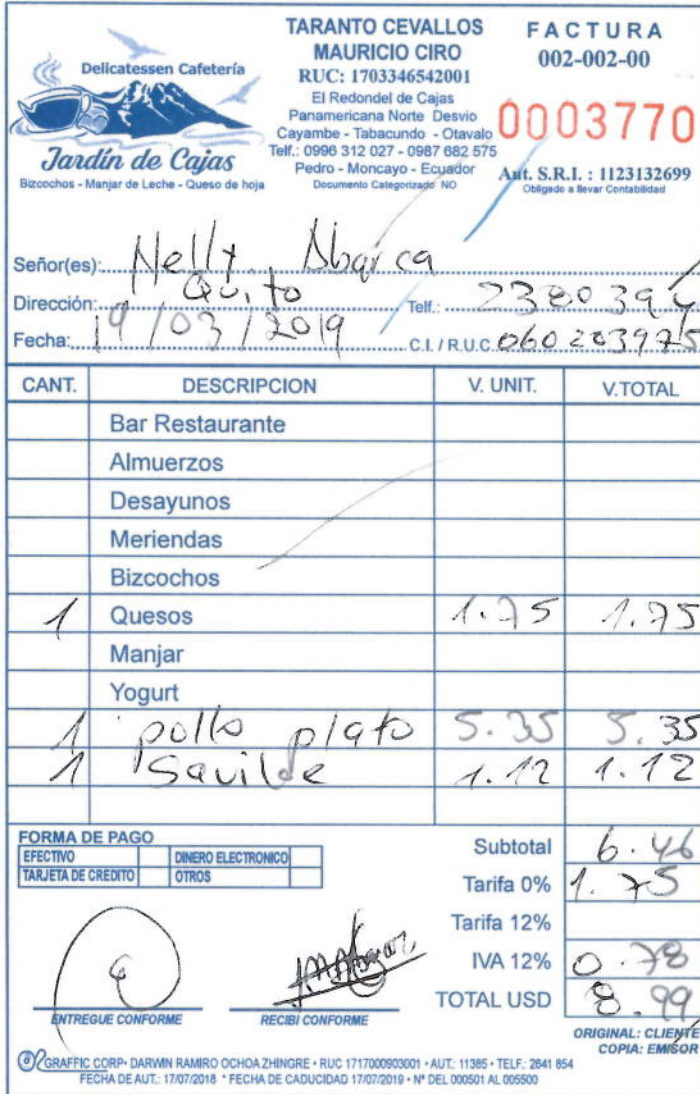 Delicatessen Cafetería
Jardín de Cajas
Bizcochos - Manjar de Leche - Queso de hoja
TARANTO CEVALLOS
MAURICIO CIRO
RUC: 1703346542001
El Redondel de Cajas
Panamericana Norte Desvio
Cayambe - Tabacundo - Otavalo
Telf.: 0996 312 027 - 0987 682 575
Pedro - Moncayo - Ecuador
Documento Categorizado NO
FACTURA
002-002-00
0003770
Aut. S.R.I. : 1123132699
Obligado a llevar Contabilidad
Señor(es): Nelly Abarca
Dirección: Quito Telf.: 2380394
Fecha: 19/03/2019 C.I. / R.U.C. 060203975
CANT. DESCRIPCION V. UNIT. V.TOTAL
Bar Restaurante
Almuerzos
Desayunos
Meriendas
Bizcochos
1 Quesos 1.75 1.75
Manjar
Yogurt
1 pollo plato 5.35 5.35
1 Savilde 1.12 1.12
FORMA DE PAGO
EFECTIVO DINERO ELECTRONICO
TARJETA DE CREDITO OTROS
Subtotal 6.46
Tarifa 0% 1.75
Tarifa 12%
IVA 12% 0.78
TOTAL USD 8.99
ENTREGUE CONFORME RECIBI CONFORME
ORIGINAL: CLIENTE
COPIA: EMISOR
GRAFFIC CORP• DARWIN RAMIRO OCHOA ZHINGRE • RUC 1717000903001 • AUT.: 11385 • TELF.: 2641 854
FECHA DE AUT.: 17/07/2018 * FECHA DE CADUCIDAD 17/07/2019 • Nº DEL 000501 AL 005500